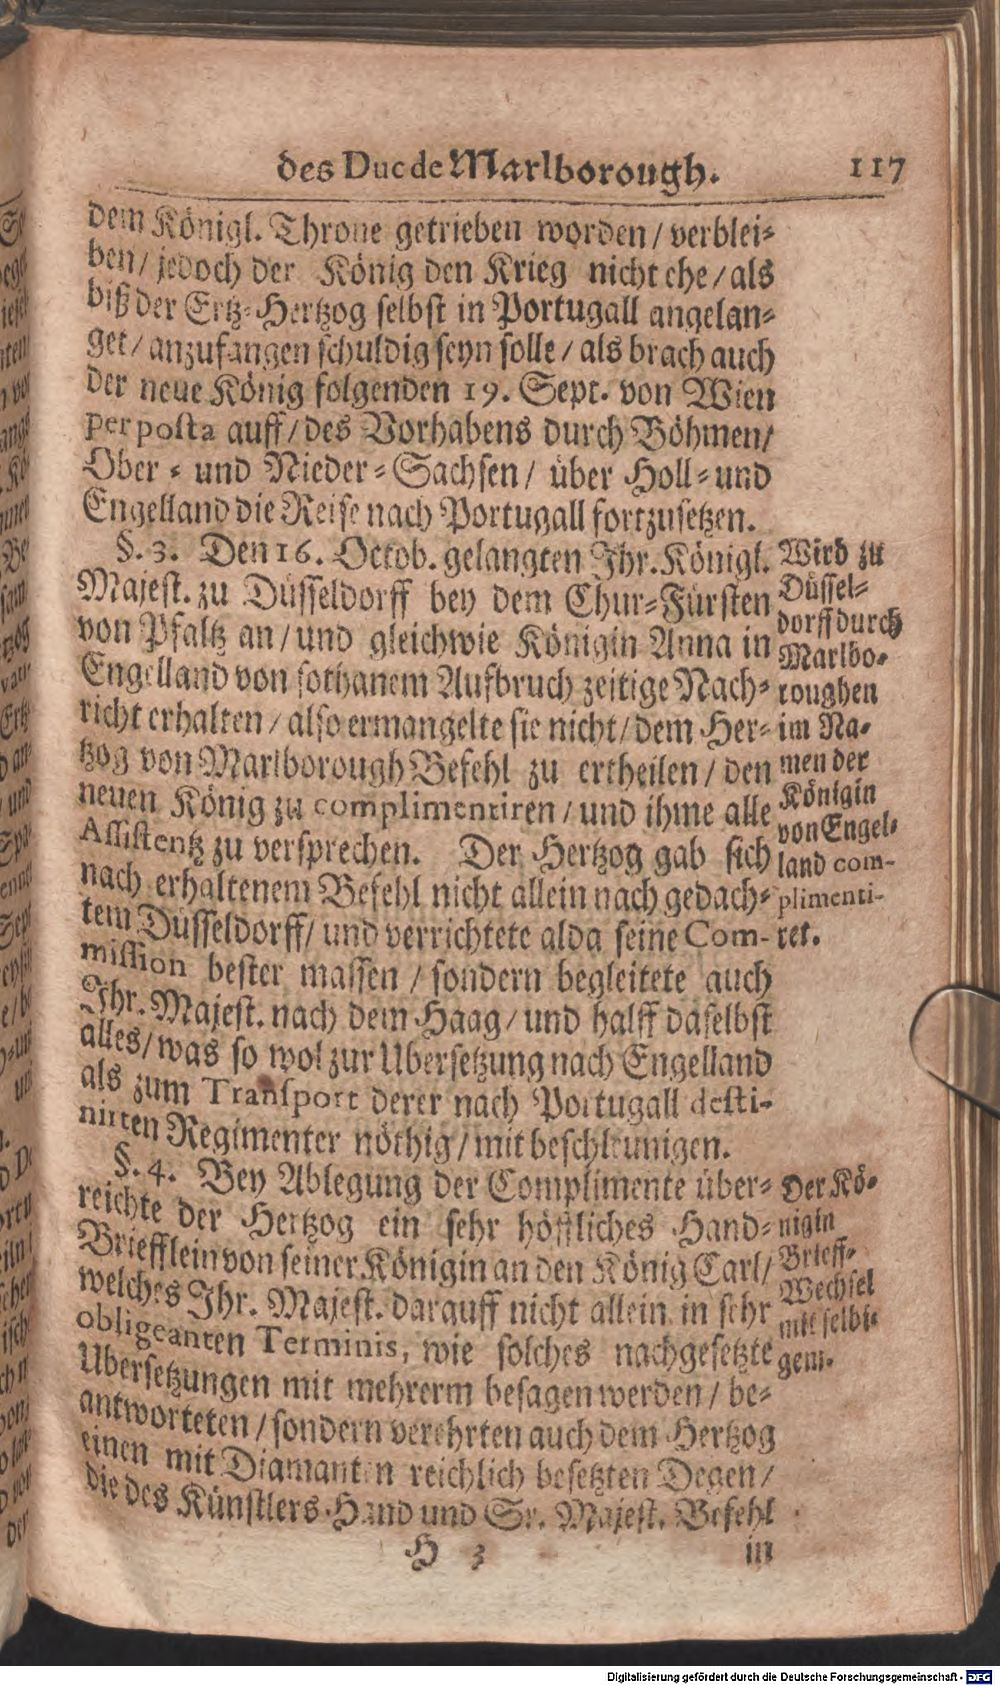 des Duc de Marlborough. 117
dem Königl. Throne getrieben worden / verblei-
ben / jedoch der König den Krieg nicht ehe / als
biß der Ertz-Hertzog selbst in Portugall angelan-
get / anzufangen schuldig seyn solle / als brach auch
der neue König folgenden 19. Sept. von Wien
per posta auff / des Vorhabens durch Böhmen /
Ober- und Nieder-Sachsen / über Holl- und
Engelland die Reise nach Portugall fortzusetzen.
§. 3. Den 16. Octob. gelangten Ihr. Königl.
Majest. zu Düsseldorff bey dem Chur-Fürsten
von Pfaltz an / und gleichwie Königin Anna in
Engelland von sothanem Aufbruch zeitige Nach-
richt erhalten / also ermangelte sie nicht / dem Her-
tzog von Marlborough Befehl zu ertheilen / den
neuen König zu complimentiren / und ihme alle
Assistentz zu versprechen. Der Hertzog gab sich
nach erhaltenem Befehl nicht allein nach gedach-
tem Düsseldorff / und verrichtete alda seine Com-
mission bester massen / sondern begleitete auch
Ihr. Majest. nach dem Haag / und halff daselbst
alles / was so wol zur Ubersetzung nach Engelland
als zum Transport derer nach Portugall desti-
nirten Regimenter nöthig / mit beschleunigen.
Wird zu
Düssel-
dorff durch
Marlbo-
roughen
im Na-
men der
Königin
von Engel-
land com-
plimenti-
ret.
§. 4. Bey Ablegung der Complimente über-
reichte der Hertzog ein sehr höffliches Hand-
Briefflein von seiner Königin an den König Carl /
welches Ihr. Majest. darauff nicht allein in sehr
obligeanten Terminis, wie solches nachgesetzte
Ubersetzungen mit mehrerm besagen werden / be-
antworteten / sondern verehrten auch dem Hertzog
einen mit Diamanten reichlich besetzten Degen /
die des Künstlers-Hand und Sr. Majest. Befehl
Der Kö-
nigin
Brieff-
Wechsel
mit selbi-
gem.
H 3 in
Digitalisierung gefördert durch die Deutsche Forschungsgemeinschaft - DFG